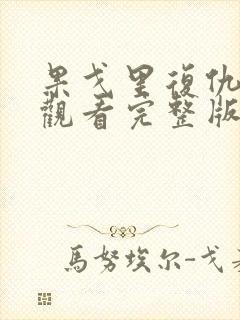 果戈里復仇
觀看完整版
馬努埃尔-戈